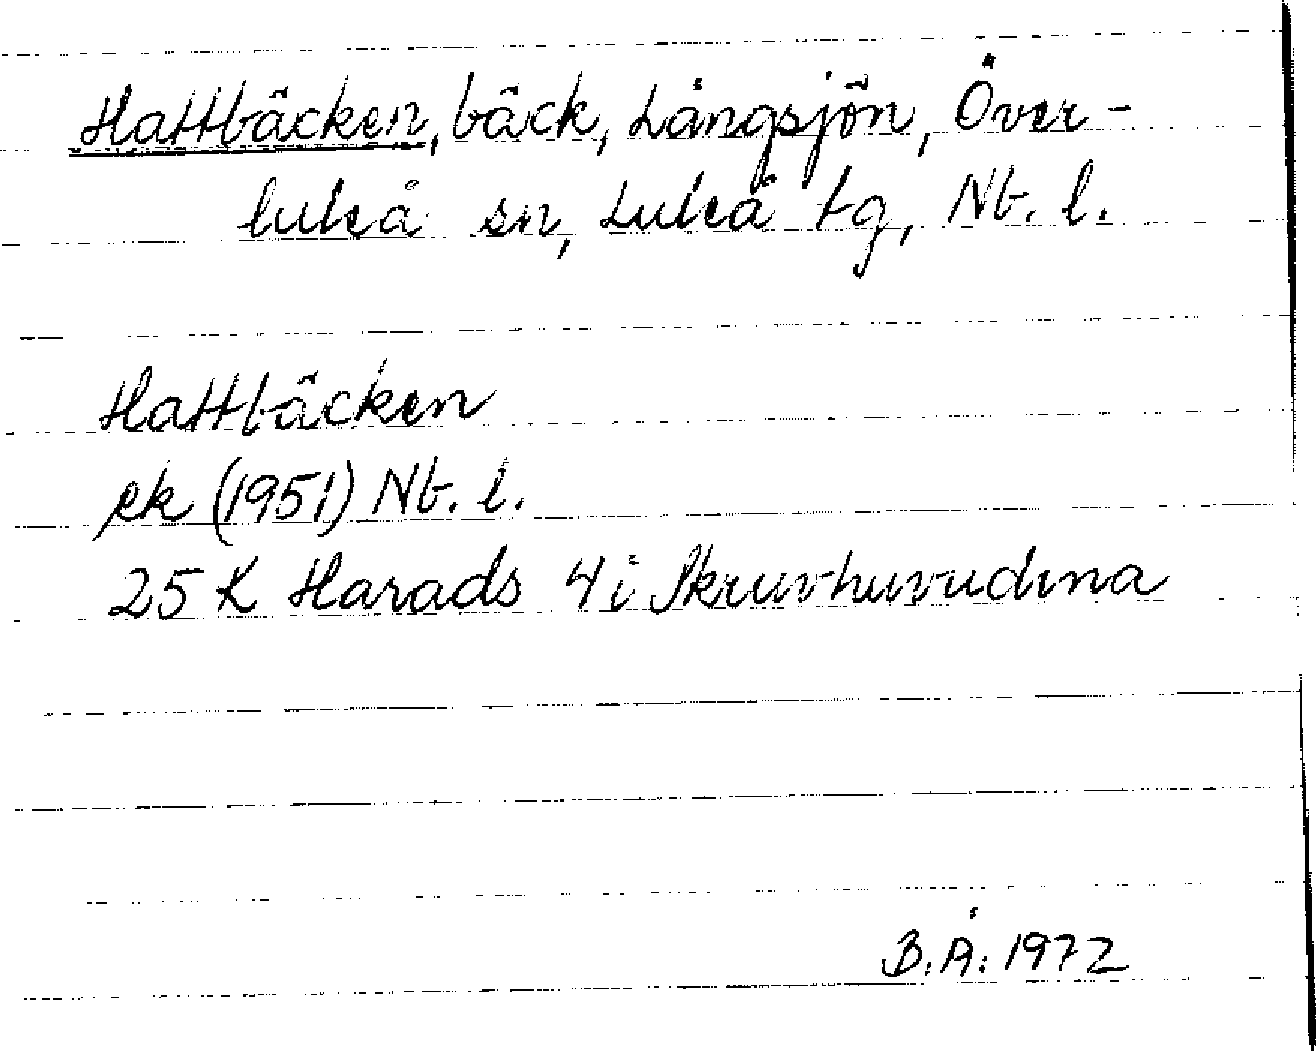 Hattbäcken, bäck, Långsjön, Över-
luleå sn, Luleå tg, Nb. l.
Hattbäcken
ek (1951) Nb. l.
25 K Harads 4i Skruvhuvudena
B.Å. 1972